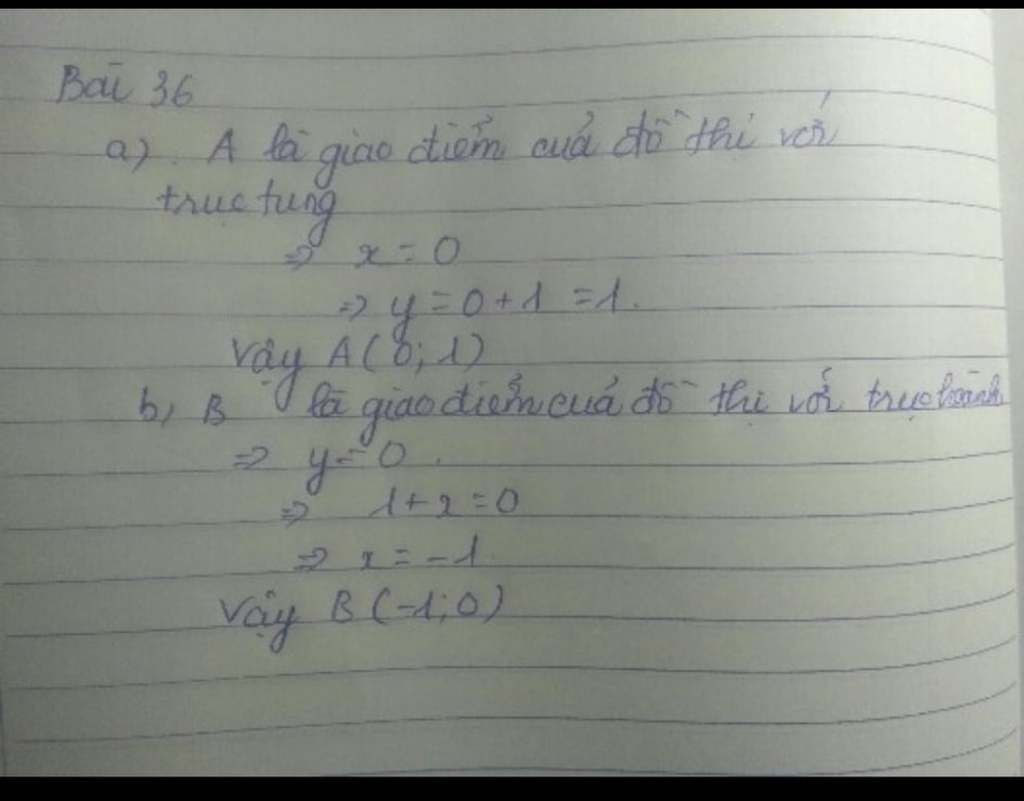 Bài 36
a) A là giao điểm của đồ thị với
trục tung
=> x = 0
=> y = 0 + 1 = 1.
Vậy A(0; 1)
b, B là giao điểm của đồ thị với trục hoành
=> y = 0.
=> 1 + x = 0
=> x = -1.
Vậy B (-1; 0)